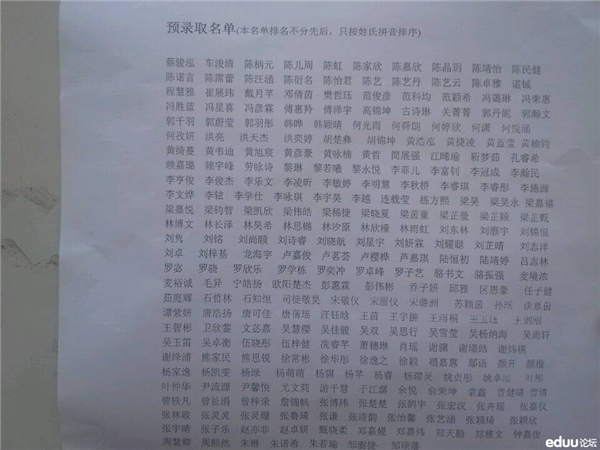 预录取名单(本名单排名不分先后，只按姓氏拼音排序)
蔡骏泓 车浚靖 陈柄元 陈儿周 陈虹 陈家欣 陈嘉欣 陈晶玥 陈靖怡 陈民健
陈诺言 陈霈蕾 陈汪涵 陈衍名 陈怡君 陈艺 陈艺丹 陈艺云 陈卓雅 谌铖
程慧雅 崔展玮 戴月苹 邓倩茵 樊哲珏 范俊彦 范科均 范颖希 冯蔼琳 冯荣惠
冯胜蓝 冯星喜 冯彦霖 傅惠羚 傅泽宇 高锦坤 古诗琳 关菁菁 郭丹妮 郭瀚文
郭千羽 郭蔚莹 郭羽彤 韩晔 韩颖晴 何光雨 何舜朗 何婷欣 何潇 何悦涵
何孜妍 洪亮 洪天杰 洪奕婷 胡楚彝 胡锦坤 黄浩泓 黄捷凌 黄蓝莹 黄楠钧
黄绮蔓 黄韦迪 黄旭宸 黄彦豪 黄咏楠 黄哲 简展强 江晞瑜 靳梦茹 孔睿希
赖嘉璐 赖宇峰 劳咏诗 黎琳 黎若曦 黎永悦 李菲儿 李富钊 李冠成 李瀚民
李亨俊 李俊杰 李乐文 李凌昕 李敏婷 李明慧 李秋桥 李睿琪 李睿彤 李施源
李文烨 李铉 李学仕 李咏琪 李宇昊 李越 连载莹 练方熙 梁昊 梁昊永 梁嘉禧
梁嘉悦 梁钧智 梁凯欣 梁伟皓 梁稀捷 梁晓夏 梁茵童 梁芷莹 梁芷颖 梁芷甄
林博文 林长泽 林昊希 林思樾 林妙原 林欣橦 林雨虹 刘东林 刘灏宇 刘锦恒
刘隽 刘铭 刘尚颐 刘诗睿 刘晓航 刘星宇 刘妍霖 刘耀聪 刘芷晴 刘志洋
刘卓 刘梓基 龙海宇 卢嘉俊 卢茗荟 卢樱桦 芦嘉琪 陆恒初 陆靖婷 吕志林
罗宓 罗骁 罗欣乐 罗学栋 罗奕冲 罗卓峰 罗子艺 骆书文 骆振强 麦境浓
麦裕诚 毛昇 宁皓扬 欧阳楚杰 彭惠霖 彭伟彬 乔子妍 邱雅 区恩豪 任子健
茹庭辉 石哲林 石知恒 司徒敬昊 宋敬仪 宋丽仪 宋璐洲 苏颖茵 孙琛 谈嘉茵
谭紫妍 唐浩扬 唐可佳 唐荫瑶 汪钰晗 王茵 王宇翀 王雨桐
王智彬 卫欣蓥 文苾嘉 吴慧樱 吴佳骏 吴双 吴思行 吴雪莹 吴杨纳海 吴雨轩
吴玉笛 吴卓衡 伍晓彤 伍梓健 冼睿芊 萧穗琳 肖瑶 谢颢 谢瑾皓 谢炜祺
谢绎浦 熊家民 熊思锐 徐常彬 徐华彤 徐逸之 徐颖 禤嘉蕙 鄢语 颜开 颜楷
杨家逸 杨凯雯 杨泳 杨萌萌 杨骐 杨芊 杨睿 杨璨灵 姚贞彤 姚卓辰 叶彤
叶仲华 尹流源 尹馨悦 尤文莉 游千慧 于江灏 余悦 俞荣坤 袁鑫 曾健晴 曾倩
曾轶凡 曾祉涓 曾梓棠 詹锦帆 张博玮 张楚楚 张鹄宇 张宏汉 张卉瑶 张嘉仪
张林政 张灵灵 张灵珊 张鲁琦 张谦 张诗韵 张怡馨 张艺涵 张颖琦 张颖欣
张宇千 章子乐 赵亦非 赵卓妍 甄晓柔 郑嘉缇 郑嘉炜 郑天勤 郑稚文 钟嘉俊
周慧卿 周熙然 朱琳 朱诺希 朱若瑜 邹衡捷 邹禄藩
eduu论坛